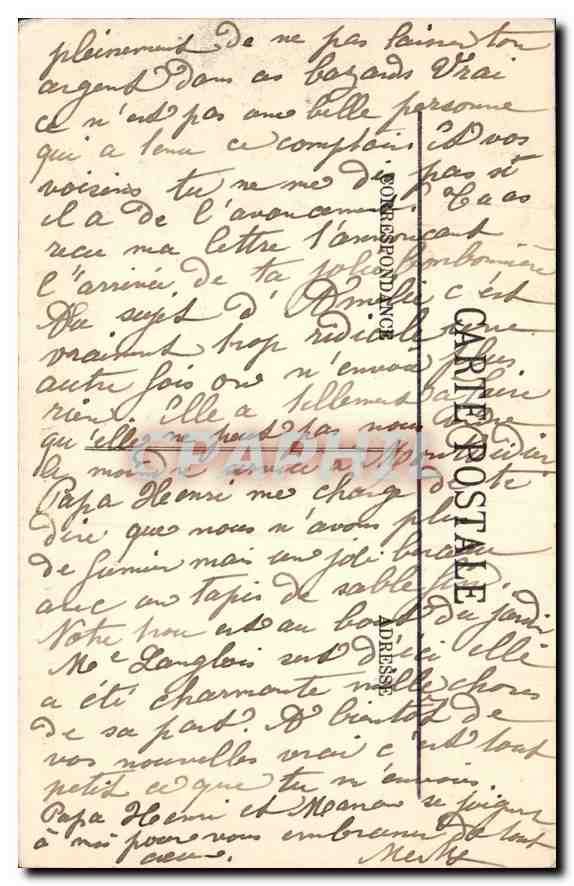 pleinement de ne pas laisser ton
argent dans ces bazards Vrai
ce n'est pas une belle personne
qui a tenu ce comptoir et vos
voisins tu ne me dis pas s'
il a de l'avancement. Tu as
recu ma lettre t'annonçant
l'arrivée de ta jolie bonbonnière
Au sujet d'Amélie c'est
vraiment trop ridicule une
autre fois on n'envoie plus
rien. Elle a tellement a faire
qu'elle ne peut pas nous
le moindre service à Montdidier
Papa Henri me charge de te
dire que nous n'avons plus
de fumier mais un joli berceau
avec un tapis de sable fin.
Notre trou est au bout du jardin
Me Langlois sort d'ici elle
a été charmante mille choses
de sa part. A bientôt de
vos nouvelles vrai c'est tout
petit ce que tu m'envoies.
Papa Henri et Maman se joignent
à moi pour vous embrasser de tout
cœur.
CARTE POSTALE
CORRESPONDANCE
ADRESSE
CPAPHIL